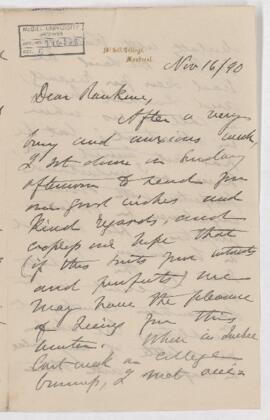 McGILL UNIVERSITY
ARCHIVES
ACC. NO.
REF.
McGill College,
Montreal.
Nov 16/90
Dear Rankine,
After a very
busy and anxious week,
I sit down on Sunday
afternoon to send you
our good wishes and
kind regards, and
express our hope that
(if this suits your interests
and projects) we
may have the pleasure
of seeing you this
winter. When in Quebec
last week on college
business, I met